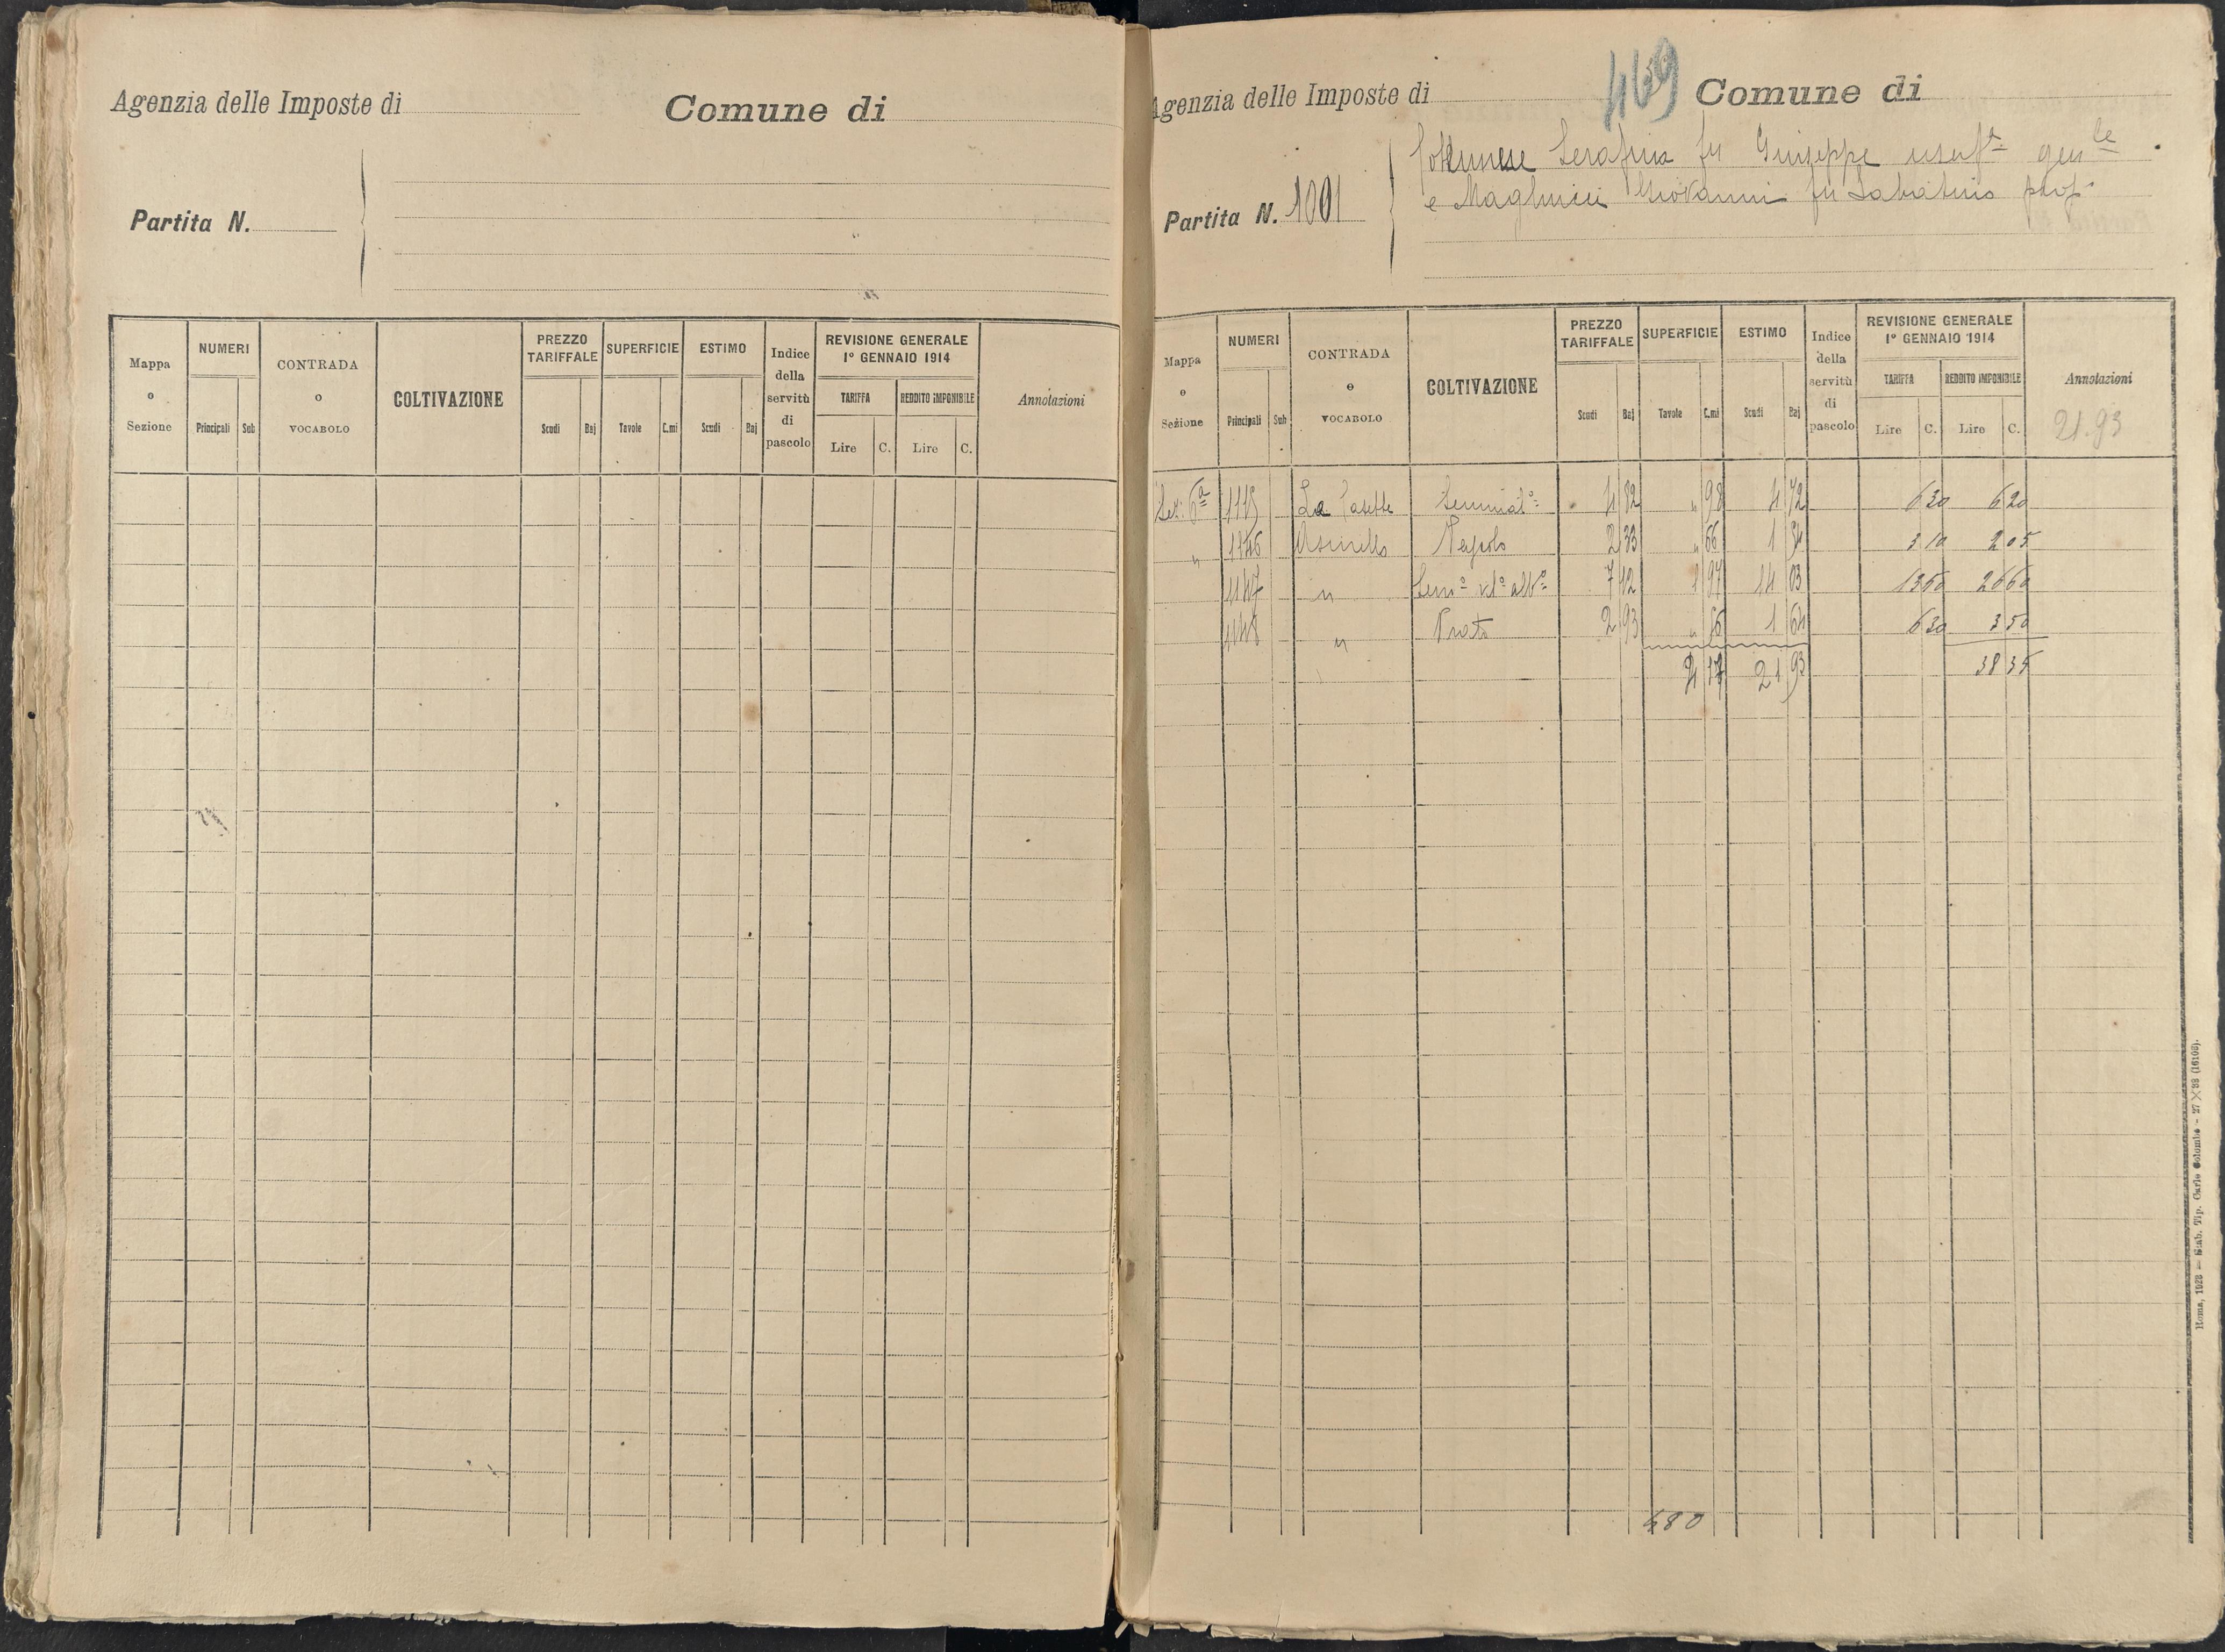 Agenzia delle Imposte di
Comune di
Partita N.
Mappa o Sezione
NUMERI
Principali
Sub
CONTRADA o VOCABOLO
COLTIVAZIONE
PREZZO TARIFFALE
Scudi
Baj
SUPERFICIE
Tavole
C.mi
ESTIMO
Scudi
Baj
Indice della servitù di pascolo
REVISIONE GENERALE 1º GENNAIO 1914
TARIFFA
Lire
C.
REDDITO IMPONIBILE
Lire
C.
Annotazioni
Agenzia delle Imposte di
469
Comune di
Partita N. 1001
Serafina fu Giuseppe usuf.ª gen.le
e Giovanni fu Sabatino prop.
Mappa o Sezione
NUMERI
Principali
Sub
CONTRADA o VOCABOLO
COLTIVAZIONE
PREZZO TARIFFALE
Scudi
Baj
SUPERFICIE
Tavole
C.mi
ESTIMO
Scudi
Baj
Indice della servitù di pascolo
REVISIONE GENERALE 1º GENNAIO 1914
TARIFFA
Lire
C.
REDDITO IMPONIBILE
Lire
C.
Annotazioni
21.93
Sez. 6ª La Casette Seminat.º 4 82 " 98 4 72 6 30 6 20
" 1146 Asinello 2 33 " 66 1 54 3 10 2 05
1147 " Sem.º vt.º alb.º 7 12 1 97 14 03 13 50 26 60
1148 " Prato 2 93 " 56 1 64 6 30 3 50
4 17 21 93 38 35
480
Roma, 1928 — Stab. Tip. Carlo Colombo - 27 × 38 (16108).